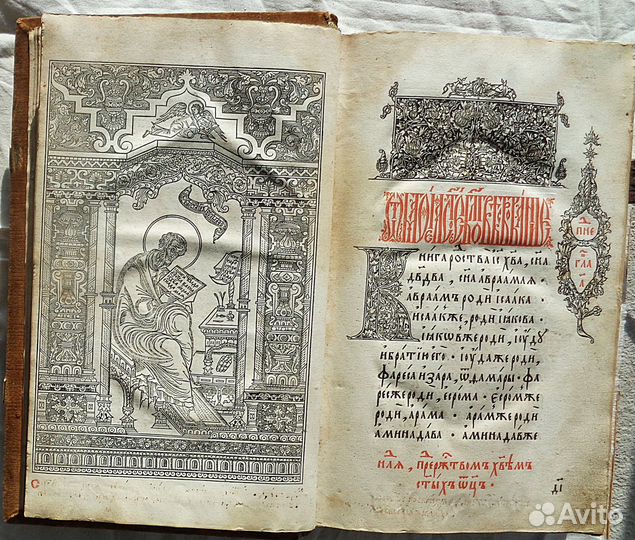 Книга роства іс҃ хв҃а, сн҃а
дв҃два, сн҃а авраамля
авраамъ роди исаака ·
исаакже, роди іакова ·
іаковже роди, іюду
и братию его · іюдаже роди,
фареса и зара, ѿ дамары · фа
ресже роди, есрома · есромже
роди, арама · арамже роди
аминадава · аминадавже
пне
гла
а
нл҃я, пред ржтвомъ хв҃ѣмъ
ст҃ыхъ ѿц҃ъ
ді
Avito